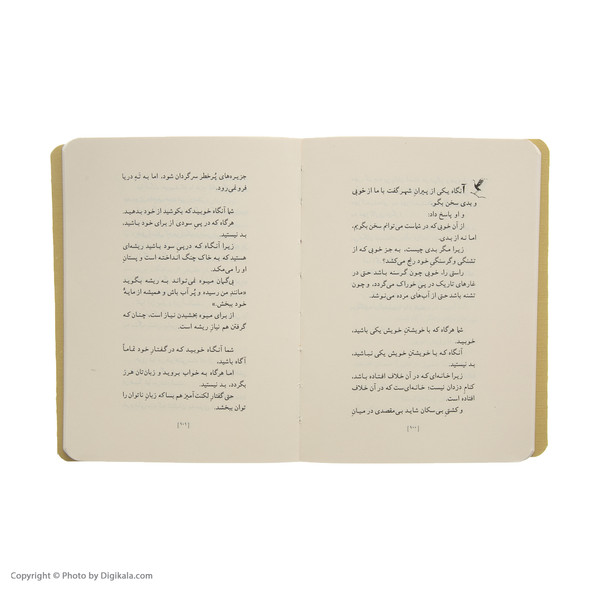 آنگاه یکی از پیرانِ شهر گفت با ما از خوبی
و بدی سخن بگو.
و او پاسخ داد:
از آن خوبی که در شماست می‌توانم سخن بگویم،
اما نه از بدی.
زیرا مگر بدی چیست، به جز خوبی که از
تشنگی و گرسنگیِ خود رنج می‌کشد؟
راستی را، خوبی چون گرسنه باشد حتی در
غارهای تاریک در پی خوراک می‌گردد، و چون
تشنه باشد حتی از آب‌های مرده می‌نوشد.
شما هرگاه که با خویشتنِ خویش یکی باشید،
خوبید.
آنگاه که با خویشتنِ خویش یکی نباشید،
بد نیستید.
زیرا خانه‌ای که در آن خلاف افتاده باشد،
کنام دزدان نیست؛ خانه‌ای‌ست که در آن خلاف
افتاده است.
و کشتیِ بی‌سکان شاید بی‌مقصدی در میانِ
جزیره‌های پُرخطر سرگردان شود، اما به تَهِ دریا
فرو نمی‌رود.
شما آنگاه خوبید که بکوشید از خود بدهید.
هرگاه که در پی سودی از برای خود باشید،
بد نیستید.
زیرا آنگاه که در پی سود باشید ریشه‌ای
هستید که به خاک چنگ انداخته است و پستانِ
او را می‌مکد.
بی‌گمان میوه نمی‌تواند به ریشه بگوید
«مانندِ من رسیده و پُر آب باش و همیشه از مایهٔ
خود ببخش.»
از برای میوه بخشیدن نیاز است، چنان که
گرفتن هم نیازِ ریشه است.
شما آنگاه خوبید که در گفتارِ خود تماماً
آگاه باشید.
اما هرگاه به خواب بروید و زبان‌تان هرز
بگردد، بد نیستید.
حتی گفتارِ لکنت‌آمیز هم بسا که زبانِ ناتوان را
توان ببخشد.
Copyright © Photo by Digikala.com